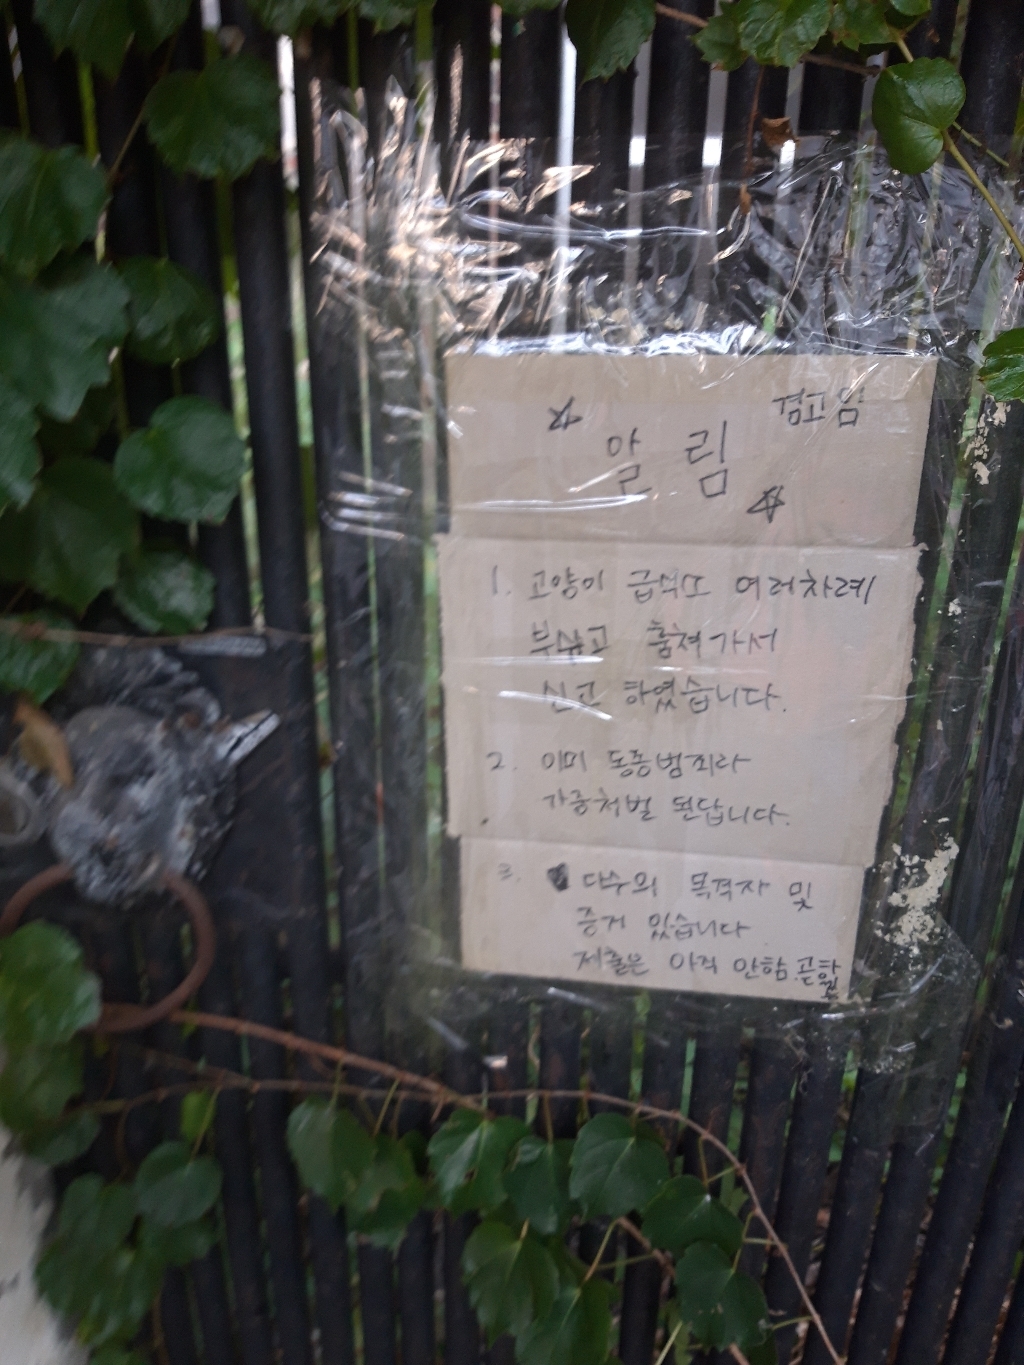 경고임
☆ 알 림 ☆
1. 고양이 급식소 여러차례
부수고 훔쳐가서
신고 하였습니다.
2. 이미 동종범죄라
가중처벌 된답니다.
3. 다수의 목격자 및
증거 있습니다
제출은 아직 안함